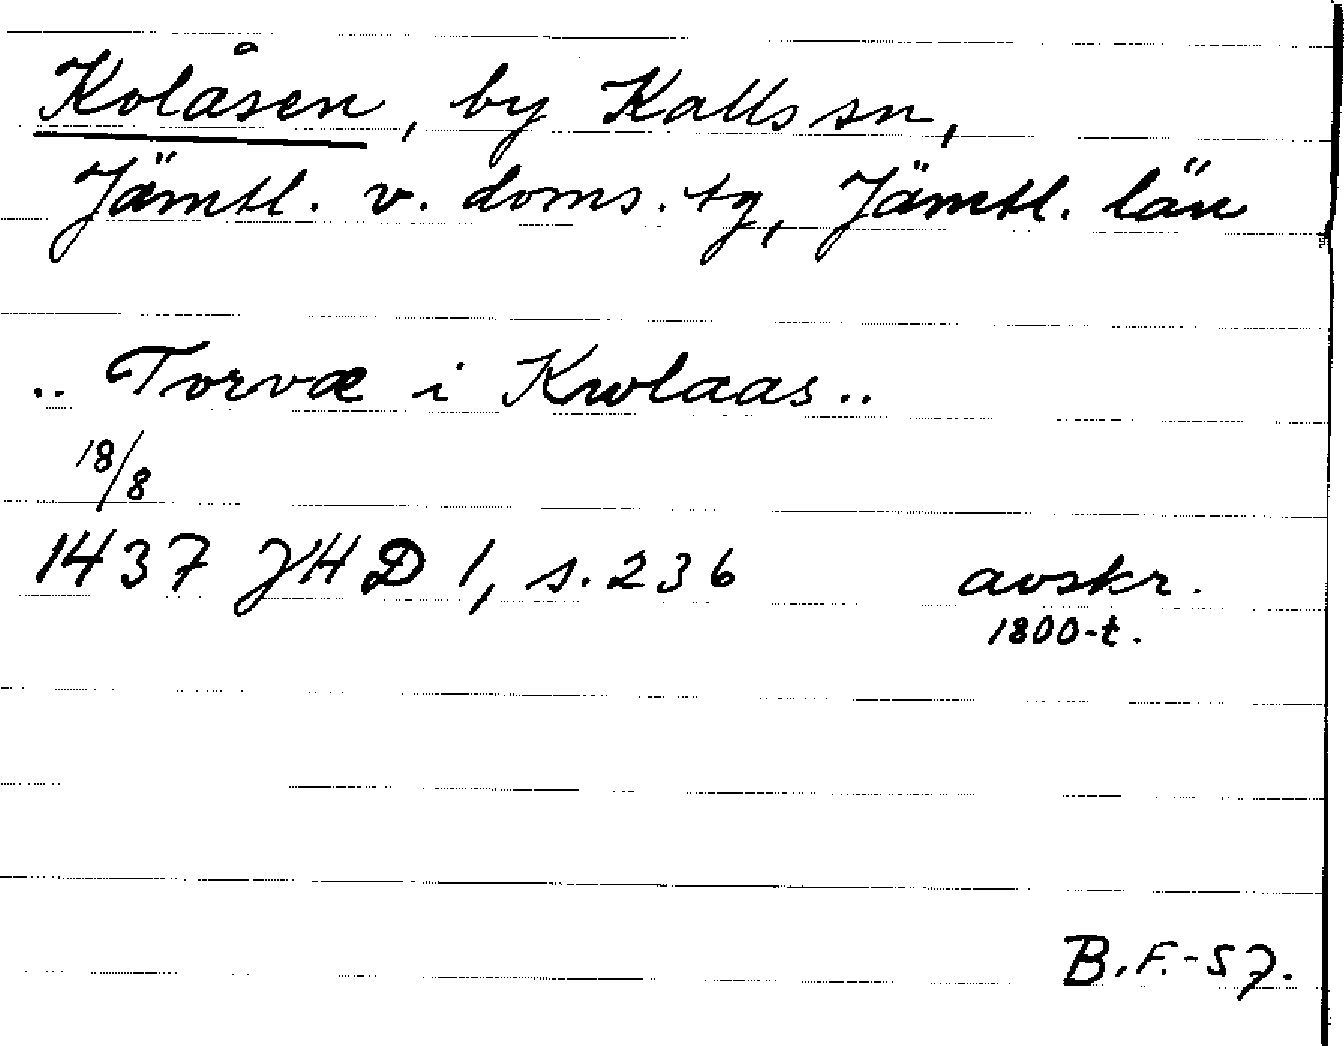 Kolåsen, by Kalls sn,
Jämtl. v. doms. tg, Jämtl. län
.. Torvæ i Kwlaas ..
18/8
1437 JHD 1, s. 236 avskr.
1800-t.
B.F.-57.